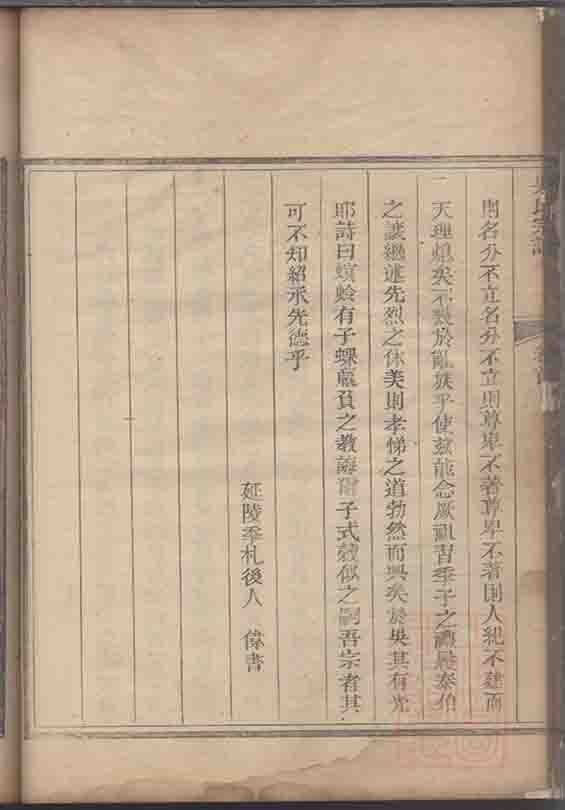 則名分不立名分不立則尊卑不著尊卑不著則人紀不建而
天理熄矣不幾於亂族乎使茲能念厥祖習季子之讓晨泰伯
之讓繼述先烈之休美則孝悌之道勃然而興矣於吳其有光
耶詩曰螟蛉有子蜾蠃負之教誨爾子式榖似之嗣吾宗者其
可不知紹承先德乎
延陵季札後人 偉書